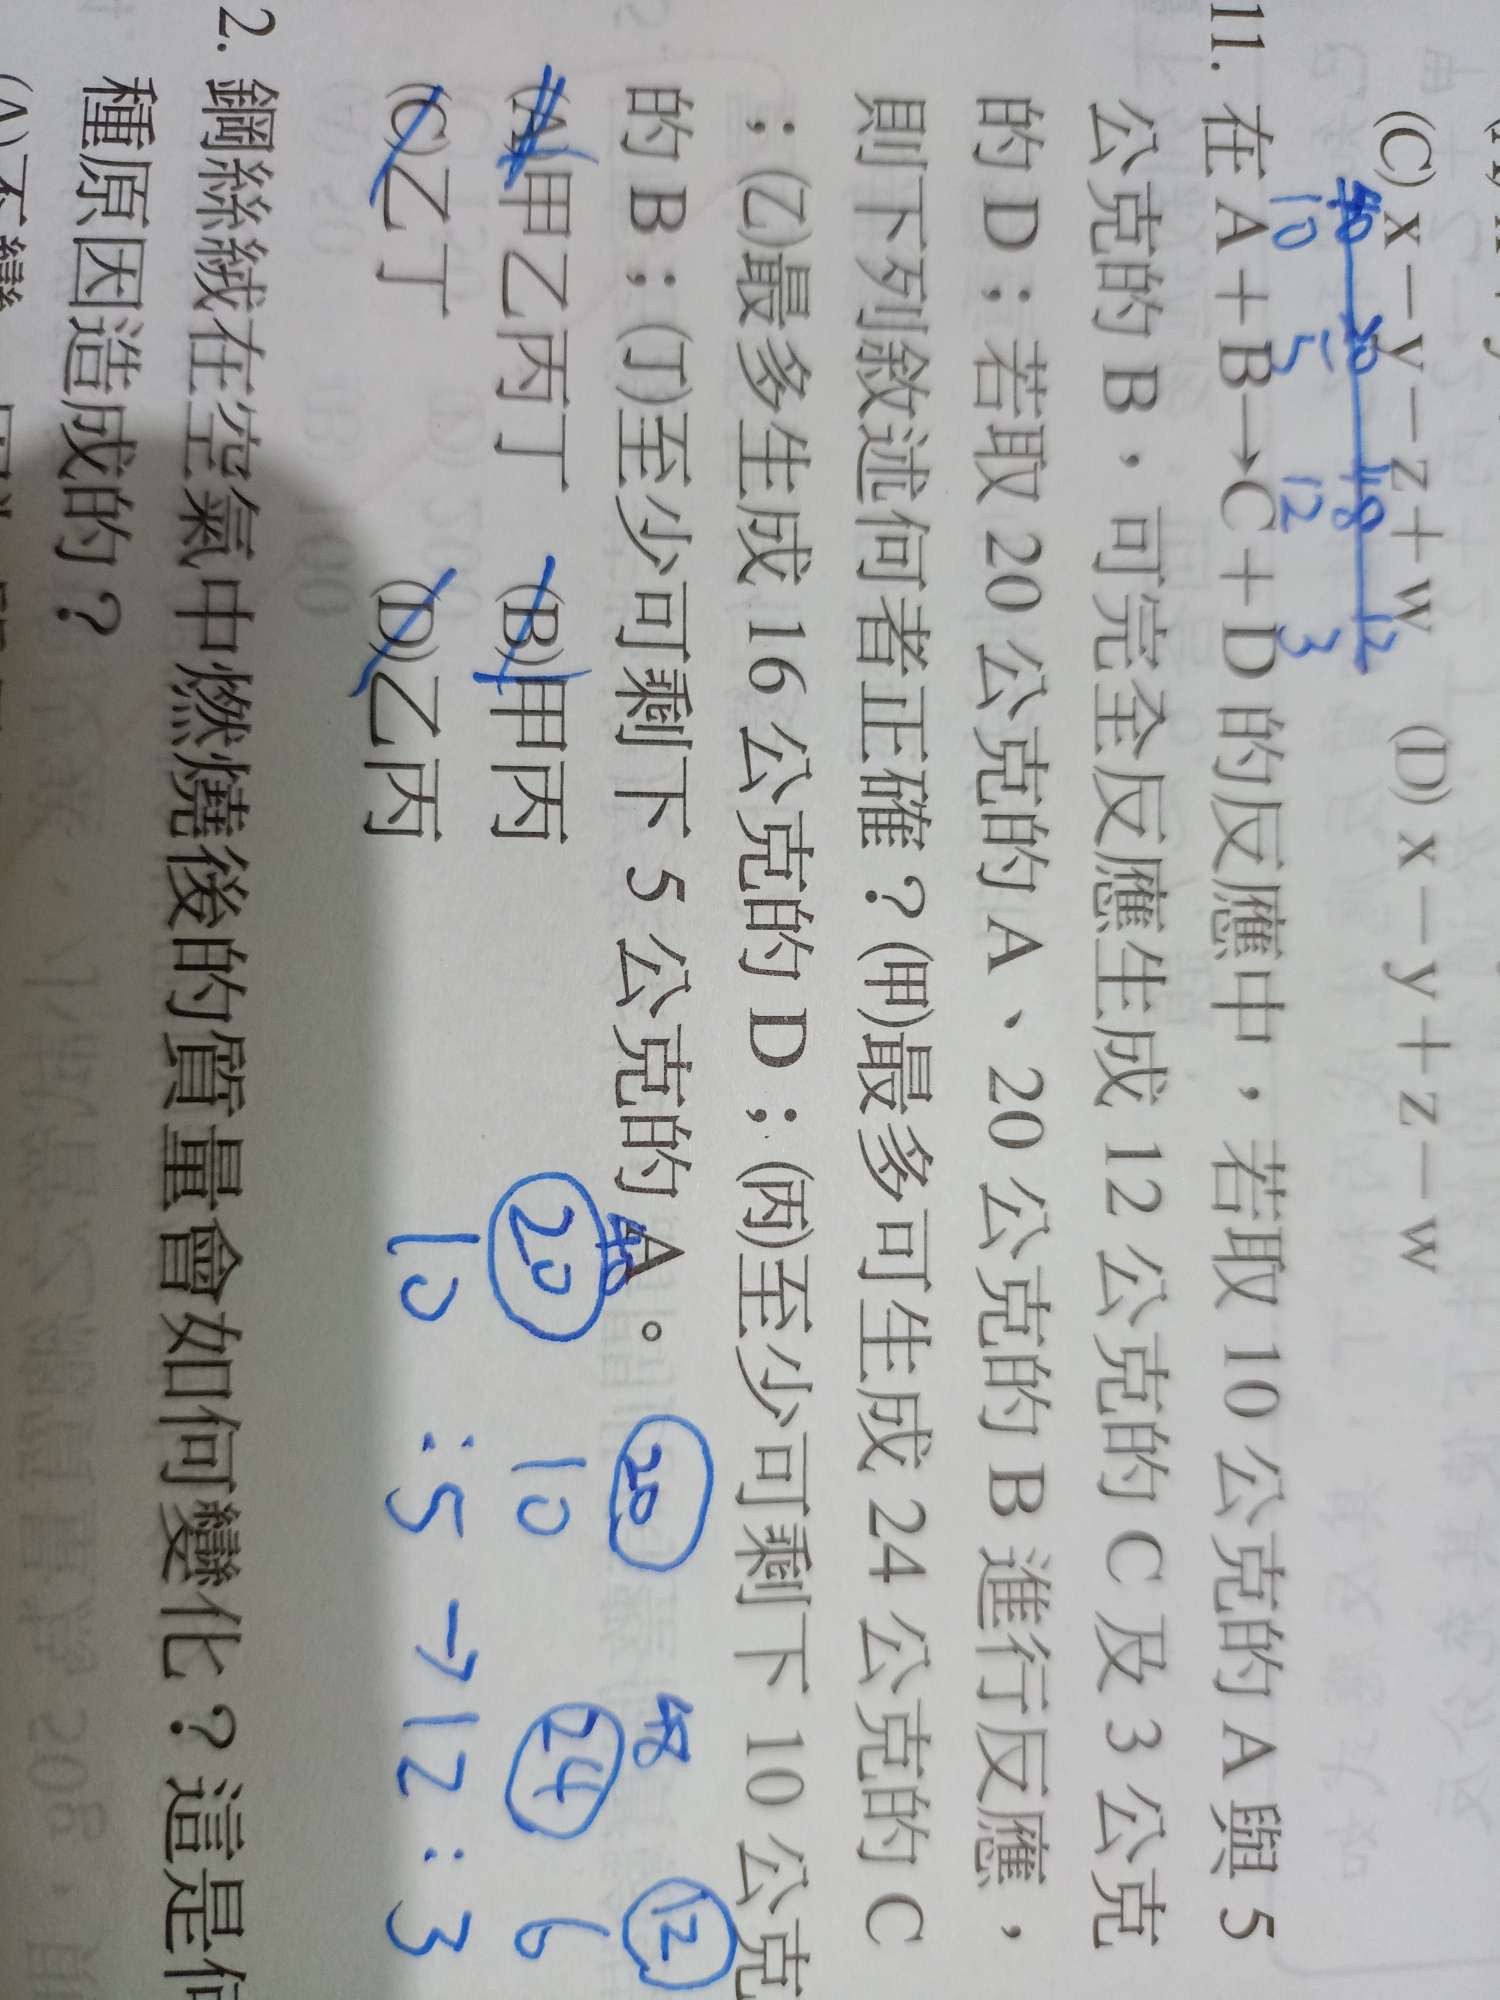 (C) x－y－z＋w　(D) x－y＋z－w
40 20 48 12
10 5 12 3
11. 在 A＋B→C＋D 的反應中，若取 10 公克的 A 與 5
公克的 B，可完全反應生成 12 公克的 C 及 3 公克
的 D；若取 20 公克的 A、20 公克的 B 進行反應，
則下列敘述何者正確？(甲)最多可生成 24 公克的 C
；(乙)最多生成 16 公克的 D；(丙)至少可剩下 10 公克
的 B；(丁)至少可剩下 5 公克的 A。
(A)甲乙丙丁　(B)甲丙
(C)乙丁　(D)乙丙
40 20 48 12
20 10 24 6
10 : 5 → 12 : 3
2. 鋼絲絨在空氣中燃燒後的質量會如何變化？這是何
種原因造成的？
(A)不變